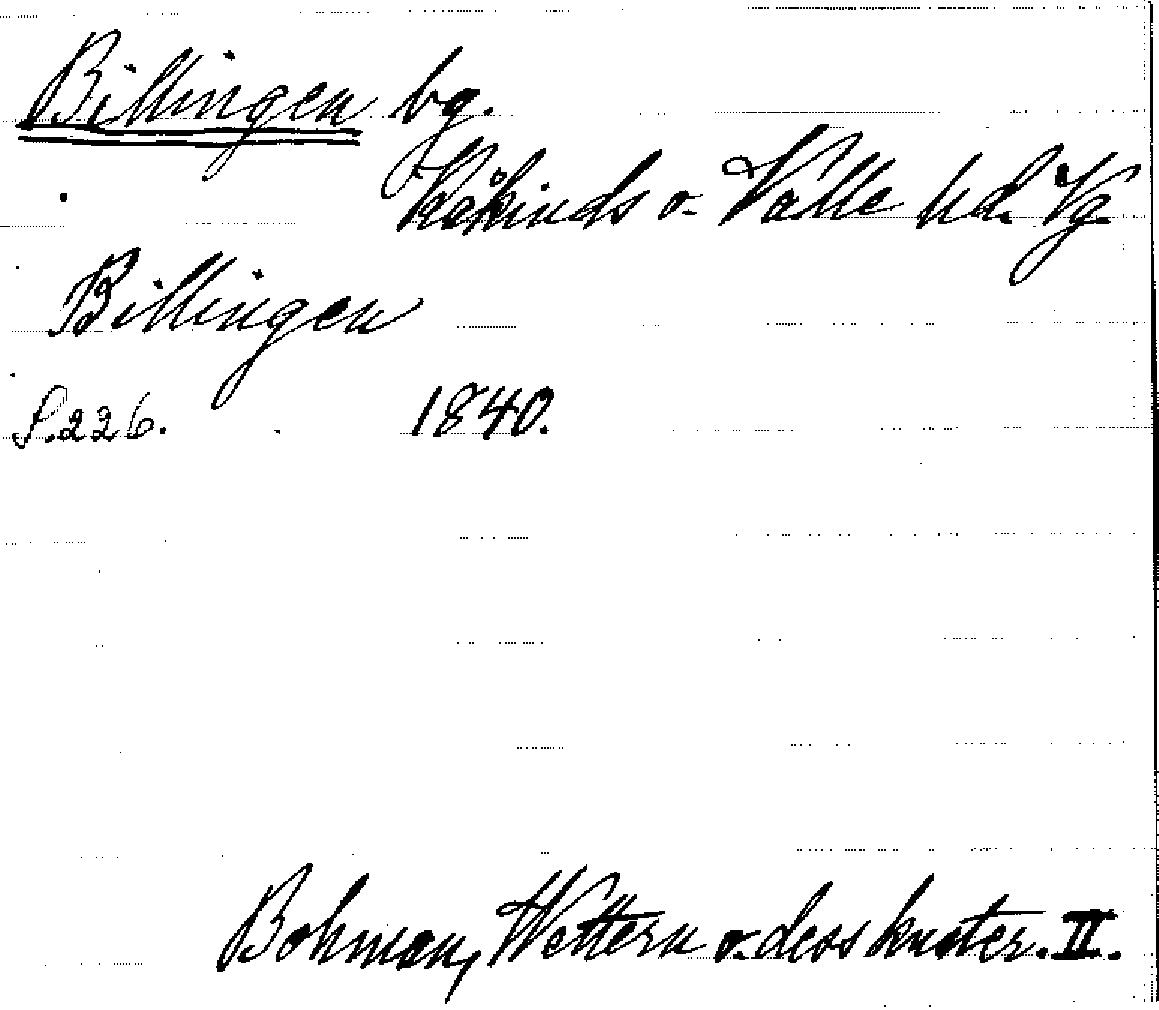 Billingen bg.
Kåkinds o. Valle hd. Vg.
Billingen
S. 226. 1840.
Bohman, Wettern o. dess kuster. II.